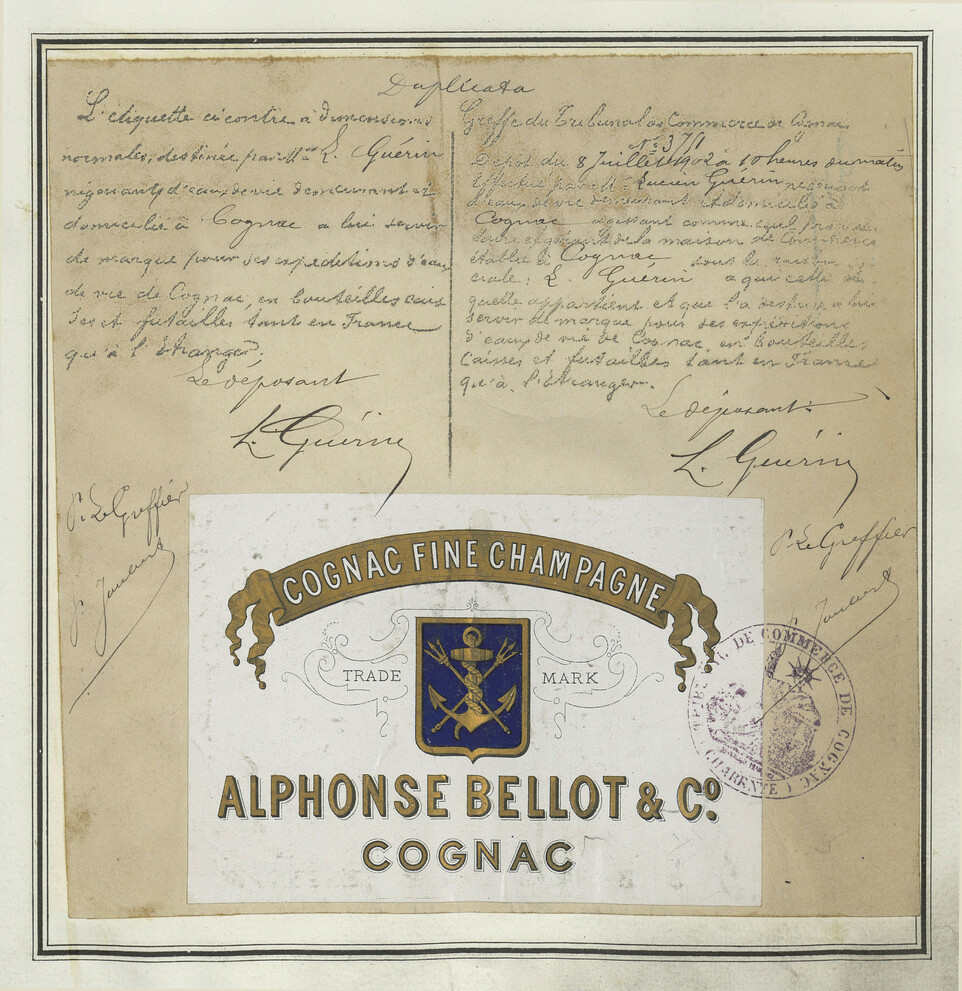 Duplicata
L'étiquette ci contre à dimensions
normales, destinée par M. L. Guérin
négociant d'eaux de vie demeurant et
domicilié à Cognac a lui servir
de marque pour ses expéditions d'eaux
de vie de Cognac, en bouteilles cais
ses et futailles tant en France
qu'à l'étranger.
Le déposant
L. Guérin
Greffe du Tribunal de Commerce de Cognac
N° 371
Dépôt du 8 Juillet 1902 à 10 heures du matin
Effectué par M. Lucien Guérin négociant
d'eaux de vie demeurant et domicilié à
Cognac agissant comme seul proprié-
taire et gérant de la maison de Commerce
établie à Cognac sous la raison
ciale: L. Guérin a qui cette éti-
quette appartient et que l'a destine a lui
servir de marque pour ses expéditions
d'eaux de vie de Cognac, en bouteilles
Caisses et futailles tant en France
qu'à l'étranger.
Le déposant
L. Guérin
P. Le Greffier
P. Le Greffier
COGNAC FINE CHAMPAGNE
TRADE MARK
ALPHONSE BELLOT & Cº.
COGNAC
TRIBUNAL DE COMMERCE DE COGNAC
(CHARENTE)